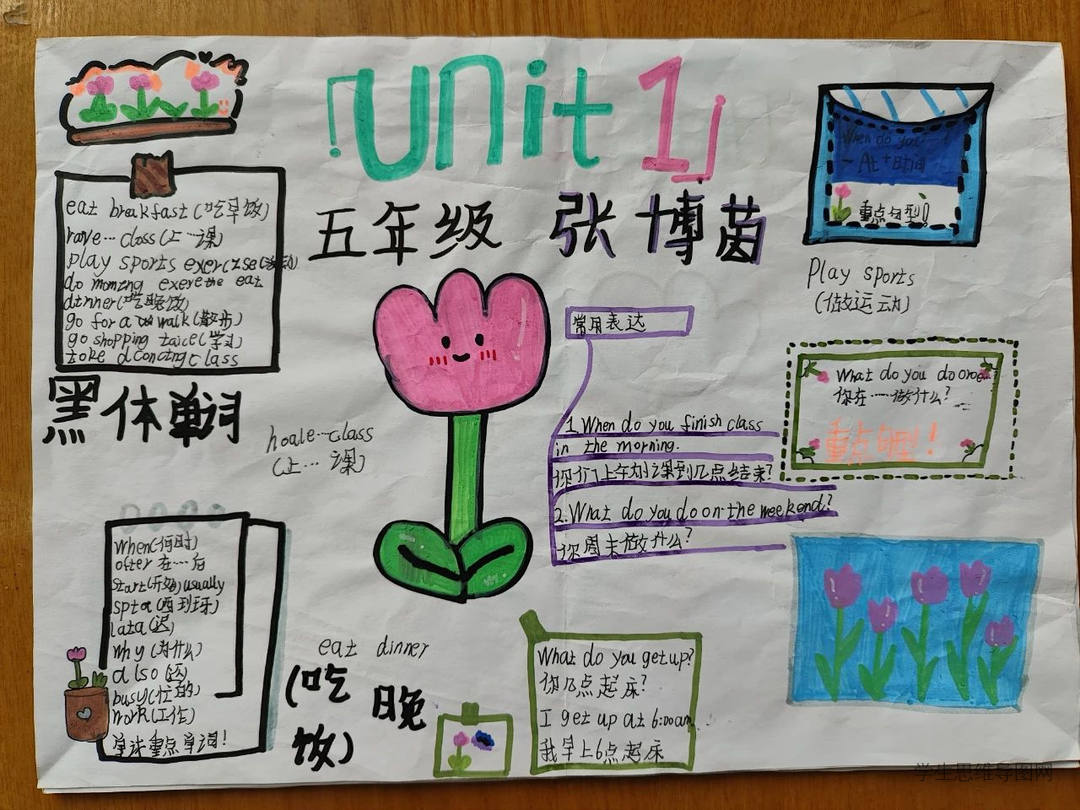 「Unit 1」
五年级 张博茵
eat breakfast(吃早饭)
have…class(上…课)
play sports exercise
do morning exere the eat
dinner(吃晚饭)
go for a walk(散步)
go shopping taice(学
take dancing class
黑体单词
hoale…class
(上…课)
when(何时)
after 在…后
start(开始)usually
spta(西班牙)
lata(迟)
why(为什么)
also
busy(忙的)
work(工作)
单词重点单词!
eat dinner
(吃晚
饭)
常用表达
1.When do you finish class
in the morning.
你们上午的课到几点结束?
2.What do you do on the weekend?
你周末做什么?
What do you get up?
你几点起床?
I get up at 6:00am
我早上6点起床
When do you…
- At+时间
重点句型!
Play sports
(做运动)
What do you do
你在……做什么?
重点句型!
学生思维导图网